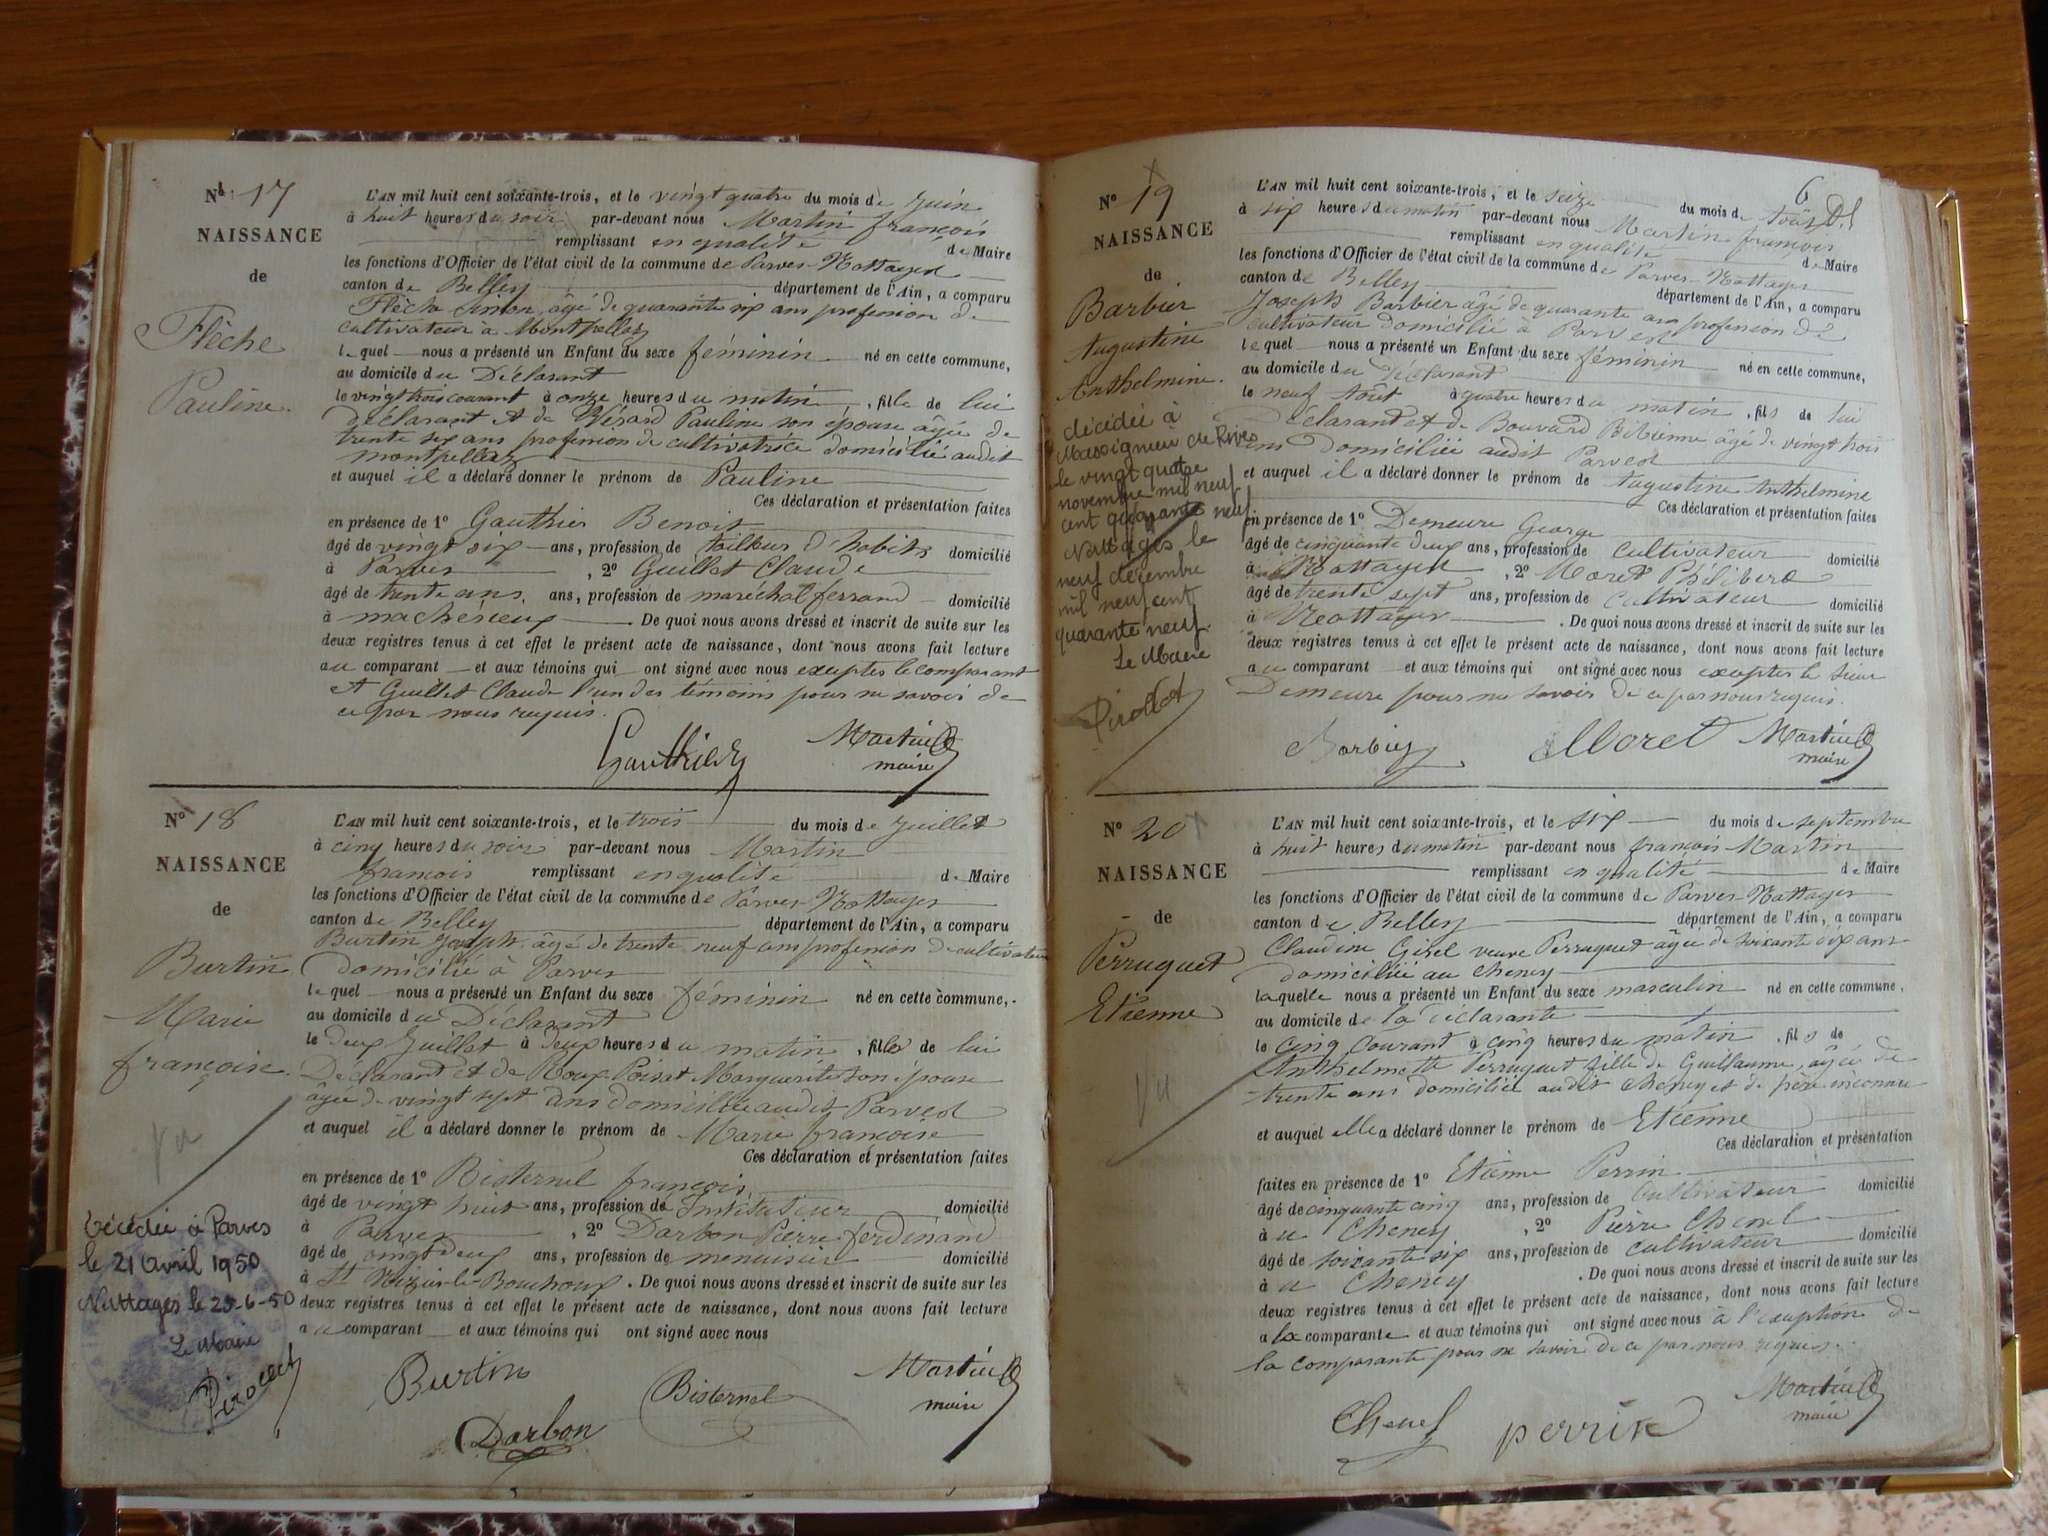 N° 17
NAISSANCE
de
Flèche
Pauline.
L'AN mil huit cent soixante-trois, et le vingt quatre du mois de Juin
à huit heures du soir par-devant nous Martin françois
remplissant en qualité de Maire
les fonctions d'Officier de l'état civil de la commune de Parves-Nattages
canton de Belley département de l'Ain, a comparu
Flèche Simon, âgé de quarante six ans profession de
cultivateur à Montpellaz
lequel nous a présenté un Enfant du sexe féminin né en cette commune,
au domicile du Déclarant
le vingt trois courant à onze heures du matin, fille de lui
déclarant et de Bérard Pauline son épouse âgée de
trente six ans profession de cultivatrice domiciliée audit
montpellaz
et auquel il a déclaré donner le prénom de Pauline
Ces déclaration et présentation faites
en présence de 1° Gauthier Benoit
âgé de vingt six ans, profession de tailleur d'habits domicilié
à Parves, 2° Guillet Claude
âgé de trente ans. ans, profession de maréchal ferrand domicilié
à De quoi nous avons dressé et inscrit de suite sur les
deux registres tenus à cet effet le présent acte de naissance, dont nous avons fait lecture
au comparant et aux témoins qui ont signé avec nous exceptés le comparant
et Guillet Claude l'un des témoins pour ne savoir de
ce par nous requis.
Gauthier Martin
maire
N° 18
NAISSANCE
de
Burtin
Marie
françoise.
vu
Décédée à Parves
le 21 Avril 1950
Nattages le 23-6-50
Le Maire
Pirollet
L'AN mil huit cent soixante-trois, et le trois du mois de Juillet
à cinq heures du soir par-devant nous Martin
françois remplissant en qualité de Maire
les fonctions d'Officier de l'état civil de la commune de Parves-Nattages
canton de Belley département de l'Ain, a comparu
Burtin Joseph âgé de trente neuf ans profession de cultivateur
domicilié à Parves
lequel nous a présenté un Enfant du sexe féminin né en cette commune,
au domicile du Déclarant
le deux Juillet à deux heures du matin, fille de lui
Déclarant et de Roux-Poisat Marguerite son épouse
âgée de vingt sept ans domiciliée audit Parves
et auquel il a déclaré donner le prénom de Marie françoise
Ces déclaration et présentation faites
en présence de 1° Bisternel françois
âgé de vingt huit ans, profession de Instituteur domicilié
à Parves, 2° Darbon Pierre ferdinand
âgé de vingt deux ans, profession de menuisier domicilié
à St Nizier-le Bouchoux. De quoi nous avons dressé et inscrit de suite sur les
deux registres tenus à cet effet le présent acte de naissance, dont nous avons fait lecture
au comparant et aux témoins qui ont signé avec nous
Burtin Bisternel Martin
maire
Darbon
6
N° 19
NAISSANCE
de
Barbier
Augustine
Anthelmine.
décédée à
Massignieu de Rives
le vingt quatre
novembre mil neuf
cent quarante neuf
Nattages le
neuf décembre
mil neuf cent
quarante neuf.
Le Maire
Pirollet
L'AN mil huit cent soixante-trois, et le seize du mois de Août
à six heures du matin par-devant nous Martin françois
remplissant en qualité de Maire
les fonctions d'Officier de l'état civil de la commune de Parves-Nattages
canton de Belley département de l'Ain, a comparu
Joseph Barbier âgé de quarante ans profession de
cultivateur domicilié à Parves
lequel nous a présenté un Enfant du sexe féminin né en cette commune,
au domicile du déclarant
le neuf Août à quatre heures du matin, fils de lui
Déclarant et de Bouvard Bibienne âgé de vingt trois
ans domiciliée audit Parves
et auquel il a déclaré donner le prénom de Augustine Anthelmine
Ces déclaration et présentation faites
en présence de 1° Demeure George
âgé de cinquante deux ans, profession de cultivateur domicilié
à Nattages, 2° Moret Philibert
âgé de trente sept ans, profession de cultivateur domicilié
à Nattages. De quoi nous avons dressé et inscrit de suite sur les
deux registres tenus à cet effet le présent acte de naissance, dont nous avons fait lecture
au comparant et aux témoins qui ont signé avec nous exceptés le sieur
Demeure pour ne savoir de ce par nous requis.
Barbier Moret Martin
maire
N° 20
NAISSANCE
de
Perruquet
Etienne
vu
L'AN mil huit cent soixante-trois, et le six du mois de septembre
à huit heures du matin par-devant nous françois Martin
remplissant en qualité de Maire
les fonctions d'Officier de l'état civil de la commune de Parves-Nattages
canton de Belley département de l'Ain, a comparu
Claudine Gisel veuve Perruquet âgée de soixante dix ans
domiciliée au Cheney
laquelle nous a présenté un Enfant du sexe masculin né en cette commune,
au domicile de la déclarante
le cinq courant à cinq heures du matin, fils de
Anthelmette Perruquet fille de Guillaume, âgée de
trente ans domiciliée audit Cheney et de père inconnu
et auquel elle a déclaré donner le prénom de Etienne
Ces déclaration et présentation
faites en présence de 1° Etienne Perrin
âgé de cinquante cinq ans, profession de cultivateur domicilié
à u Cheney, 2° Pierre Chenel
âgé de soixante six ans, profession de cultivateur domicilié
à u Cheney. De quoi nous avons dressé et inscrit de suite sur les
deux registres tenus à cet effet le présent acte de naissance, dont nous avons fait lecture
a la comparante et aux témoins qui ont signé avec nous à l'exception de
la comparante pour ne savoir de ce par nous requis.
Chenel perrin Martin
maire